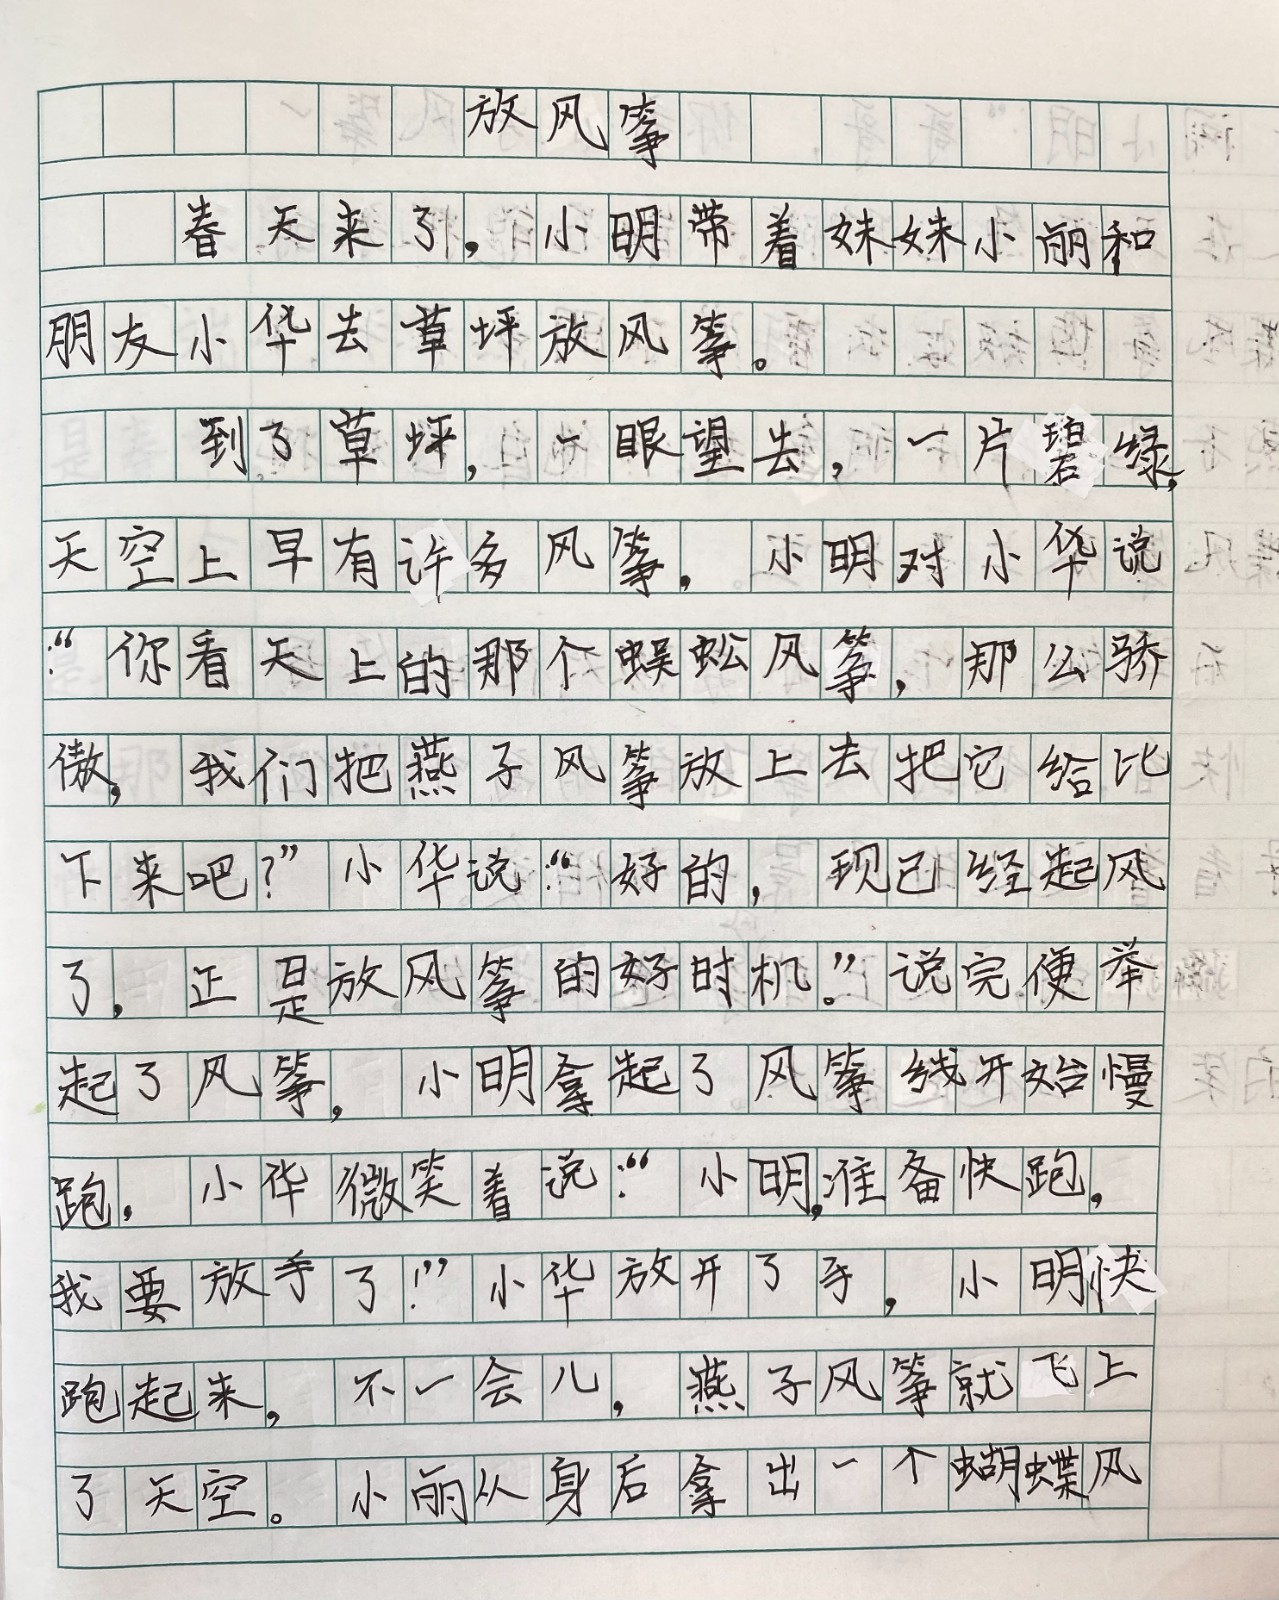 放风筝
春天来了，小明带着妹妹小丽和
朋友小华去草坪放风筝。
到了草坪，一眼望去，一片碧绿，
天空上早有许多风筝，小明对小华说
：“你看天上的那个蜈蚣风筝，那么骄
傲，我们把燕子风筝放上去把它给比
下来吧？”小华说：“好的，现已经起风
了，正是放风筝的好时机。”说完便举
起了风筝，小明拿起了风筝线开始慢
跑，小华微笑着说：“小明，准备快跑，
我要放手了！”小华放开了手，小明快
跑起来，不一会儿，燕子风筝就飞上
了天空。小丽从身后拿出一个蝴蝶风